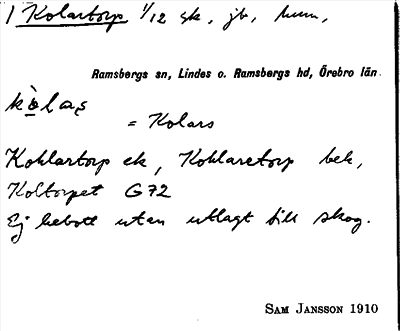 1 Kolartorp 1/12 sk, jb, hum,
Ramsbergs sn, Lindes o. Ramsbergs hd, Örebro län.
kòlaș
= Kolars
Kohlartorp ek, Kohlaretorp bek,
Koltorpet G72
Ej bebott utan utlagt till skog.
SAM JANSSON 1910